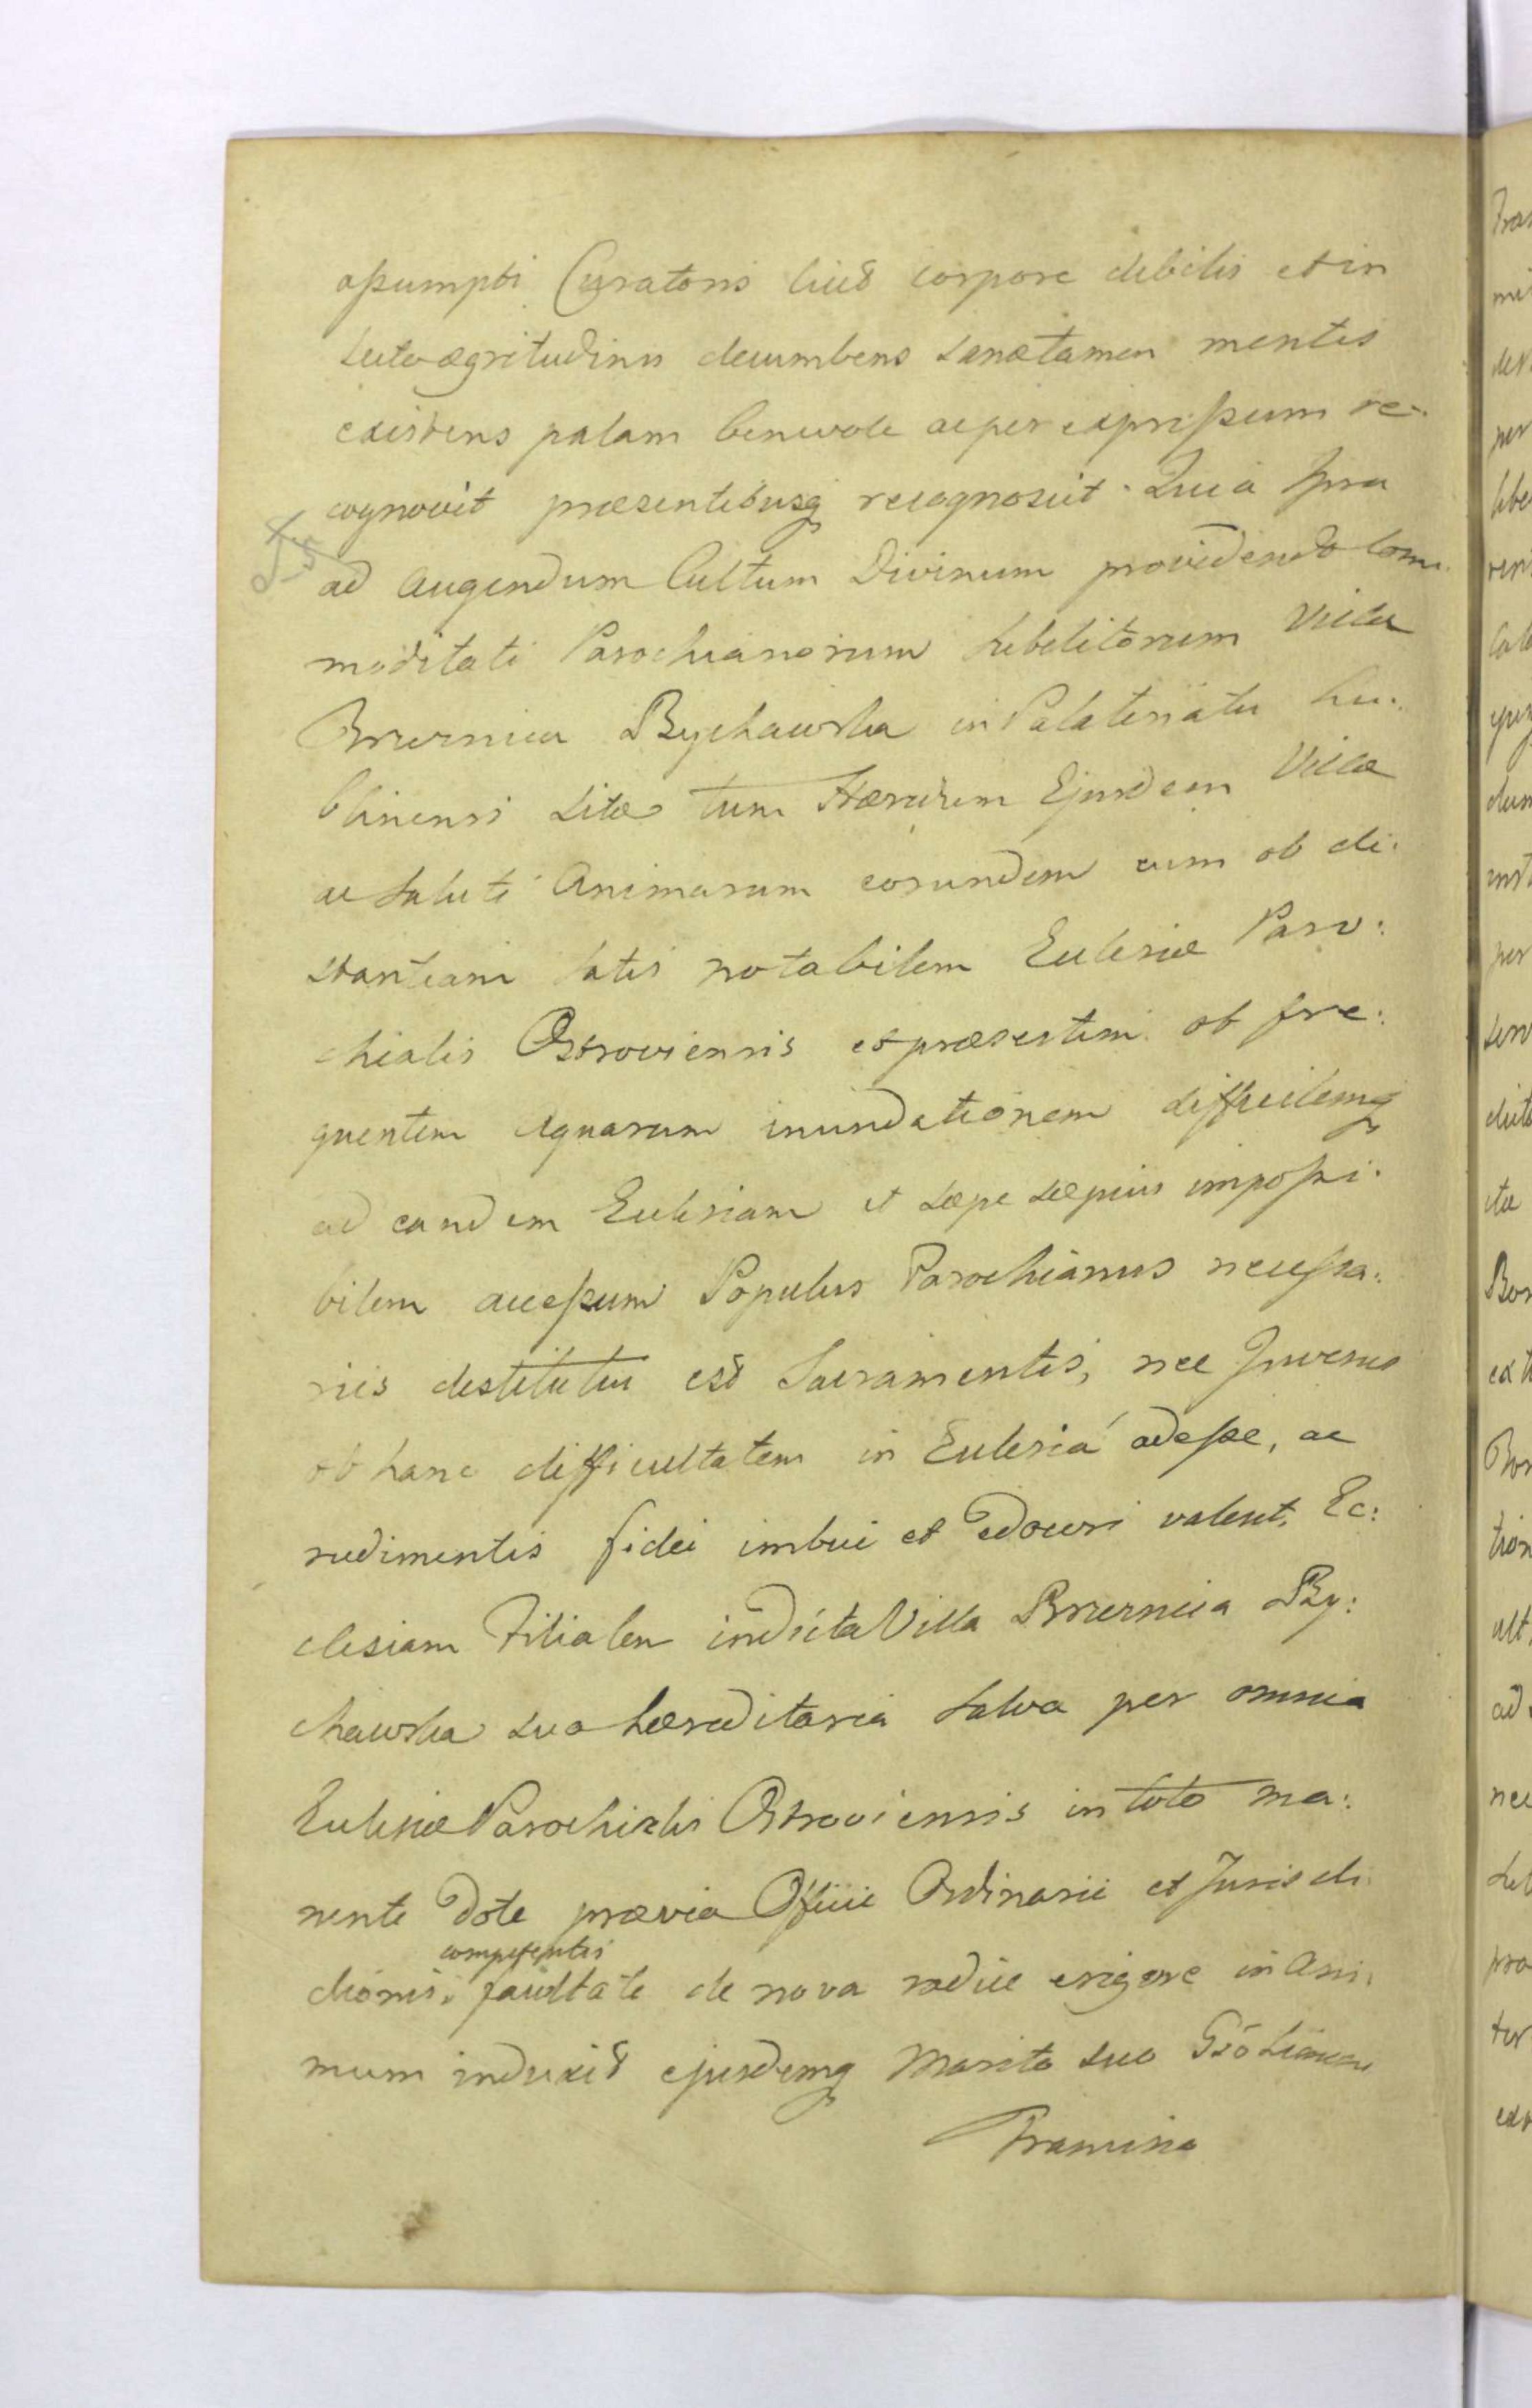 assumpti Curatoris licet corpore debilis et in
lecto ægritudinis decumbens sanætamen mentis
existens palam benevole ac per expressum re-
cognovit præsentibusq recognoscit. Quia Ipsa
ad augendum Cultum Divinum providendo Com-
moditati Parochianorum Subditorum Villæ
Brzeznica Bychawska in Palatinatu Lu-
blinensi Sitæ tum Hæredum Ejusdem Villæ
ac Saluti Animarum eorundem cum ob di-
stantiam satis notabilem Ecclesiæ Paro:
chialis Ostroviensis et præsertim ob fre:
quentem Aquarum inundationem difficilemq
ad eandem Ecclesiam et sæpe sæpius impossi-
bilem accessum Populus Parochianus necessa:
riis destitutus est Sacramentis, nec Juvenes
ob hanc difficultatem in Ecclesiá adesse, ac
rudimentis fidei imbui et edoceri valent. Ec:
clesiam Filialem in dicta Villa Brzeznica By:
chawska sua hæreditaria salva per omnia
Ecclesiæ Parochialis Ostroviensis in toto ma:
nente Dote prævia Officii Ordinarii et Jurisdi
competentis
ctionis facultate de nova radice erigere in Ani-
mum induxit ejusdemq Marito suo Gso